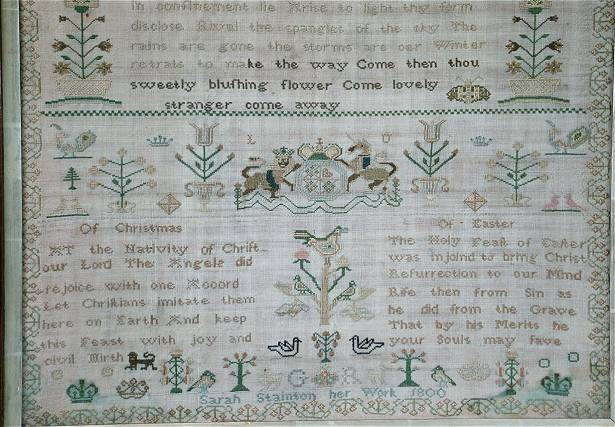 in confinement lie Arise to light thy form
disclose Rival the spangles of the sky The
rains are gone the storms are oer Winter
retrats to make the way Come then thou
sweetly bluſhing flower Come lovely
stranger come away
Of Christmas
AT the Nativity of Chriſt
our Lord The Angels did
rejoice with one Acoord
Let Chriſtians imitate them
here on Earth And keep
this Feast with joy and
civil Mirth
Of Easter
The Holy Feaſt of Eaſter
was injoind to bring Christ
Reſurrection to our Mind
Riſe then from Sin as
he did from the Grave
That by his Merits he
your Souls may ſave
G R
Sarah Stainton her Work 1800